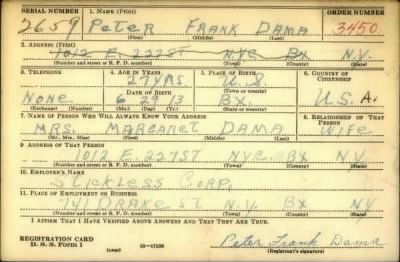 SERIAL NUMBER 1. NAME (Print) ORDER NUMBER
2659 Peter FRANK DAMA 3450
(First) (Middle) (Last)
2. ADDRESS (Print)
1012 E 227ST NYC BX N.Y.
(Number and street or R. F. D. number) (Town) (County) (State)
3. TELEPHONE 4. AGE IN YEARS 5. PLACE OF BIRTH 6. COUNTRY OF CITIZENSHIP
27YRS U.S.
DATE OF BIRTH (Town or county)
None 6 29 13 BX. U.S.A.
(Exchange) (Number) (Mo.) (Day) (Yr.) (State or country)
7. NAME OF PERSON WHO WILL ALWAYS KNOW YOUR ADDRESS 8. RELATIONSHIP OF THAT PERSON
MRS. MARGARET DAMA WIFE
(Mr., Mrs., Miss) (First) (Middle) (Last)
9. ADDRESS OF THAT PERSON
1012 E 227ST N.Y.C. BX NY
(Number and street or R. F. D. number) (Town) (County) (State)
10. EMPLOYER'S NAME
CORP.
11. PLACE OF EMPLOYMENT OR BUSINESS
741 DRAKE ST N.Y. BX NY
(Number and street or R. F. D. number) (Town) (County) (State)
I AFFIRM THAT I HAVE VERIFIED ABOVE ANSWERS AND THAT THEY ARE TRUE.
REGISTRATION CARD
D. S. S. Form 1 (over) 16-17105 Peter Frank Dama
(Registrant's signature)